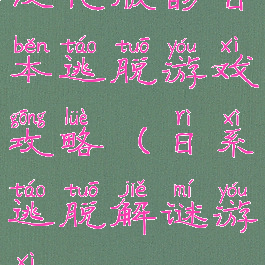 běn táo tuō yóu xì
本逃脱游戏
gōng lüè rì xì
攻略(日系
táo tuō jiě mí yóu
逃脱解谜游
xì